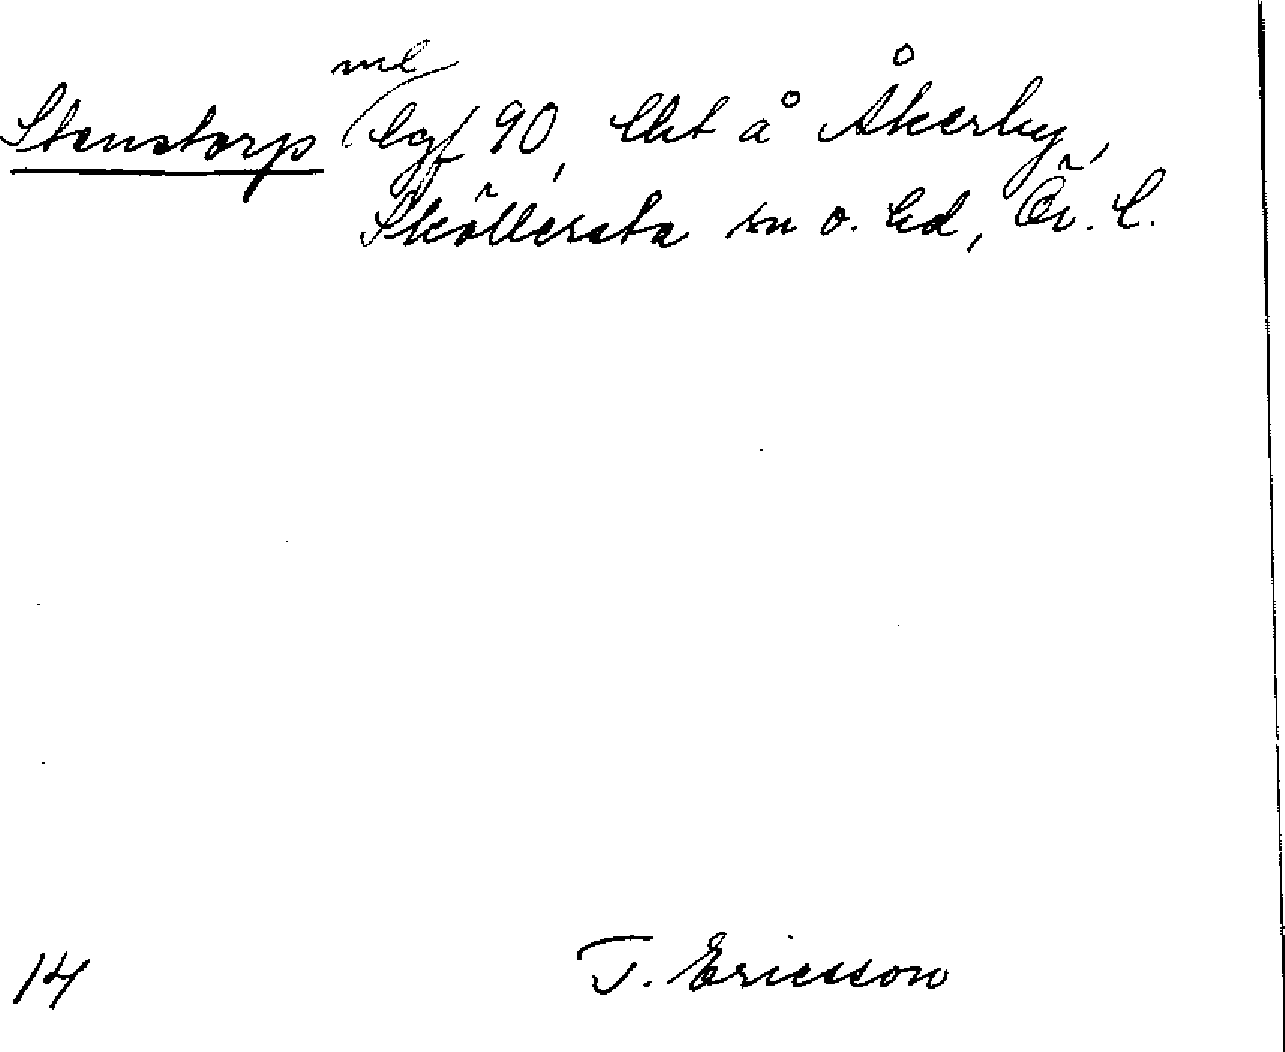 ml
Stenstorp lgf 90, lht å Åkerby,
Sköllersta sn o. hd, Ör. l.
14 T. Ericsson